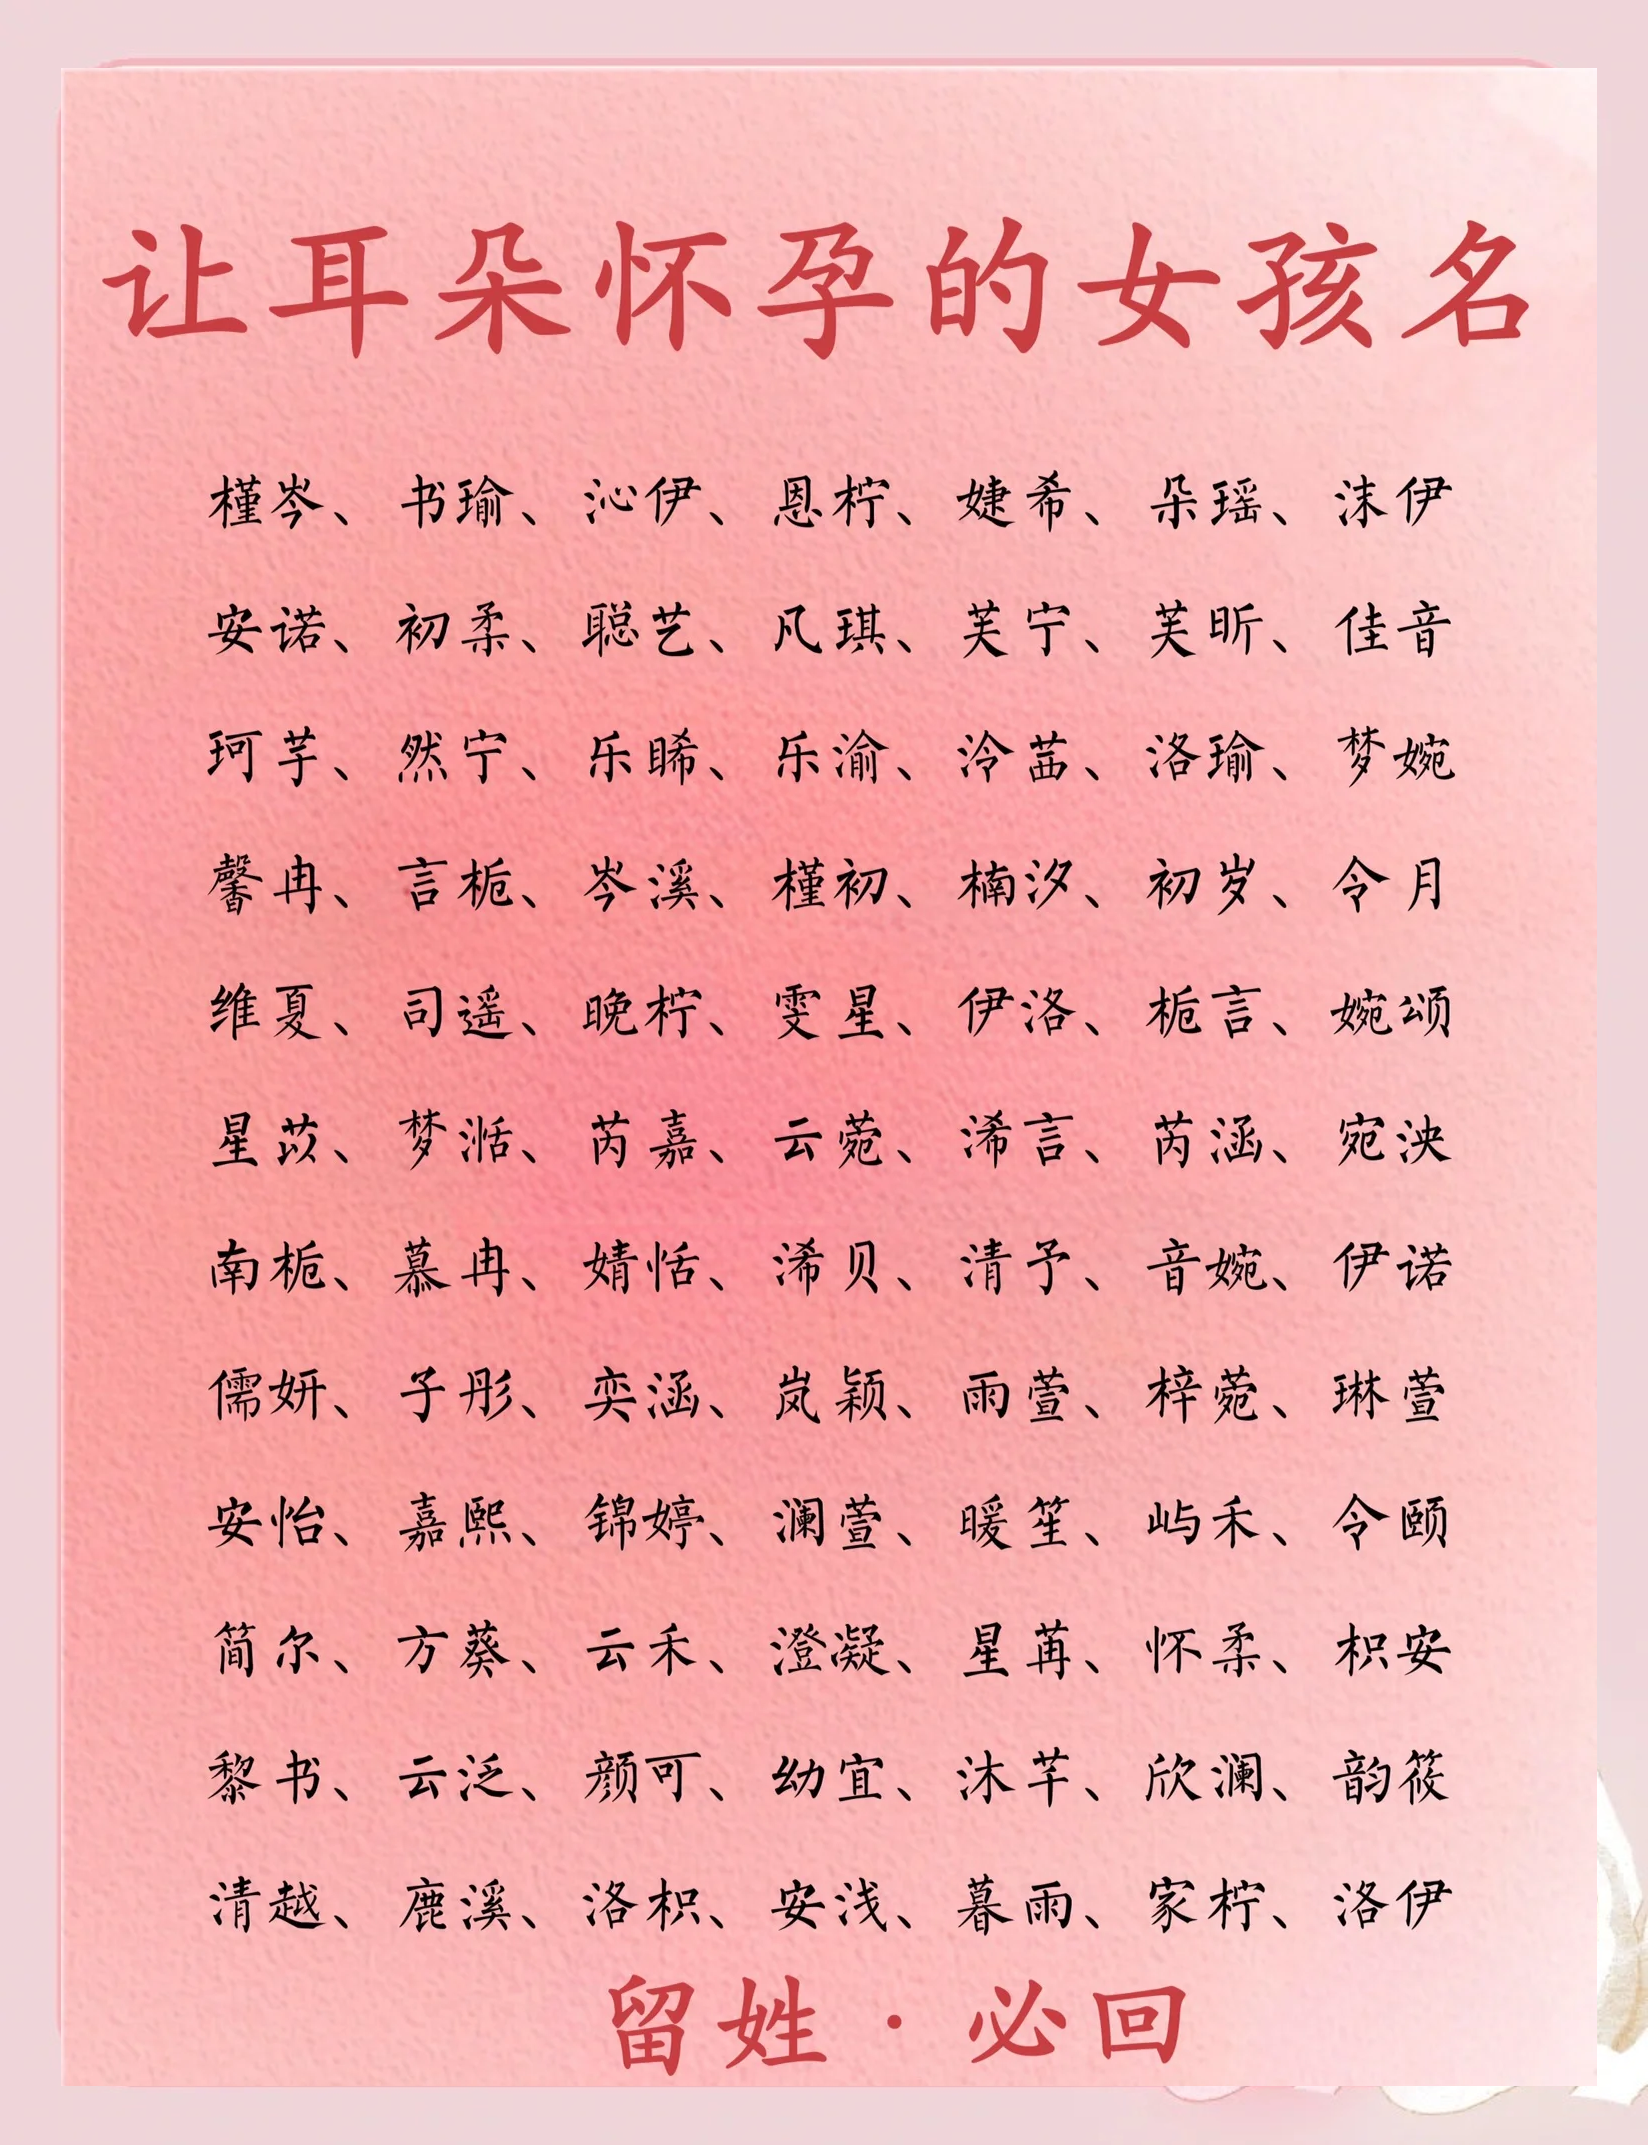 让耳朵怀孕的女孩名
槿岑、书瑜、沁伊、恩柠、婕希、朵瑶、沫伊
安诺、初柔、聪艺、凡琪、芙宁、芙昕、佳音
珂芋、然宁、乐睎、乐渝、泠茜、洛瑜、梦婉
馨冉、言栀、岑溪、槿初、楠汐、初岁、令月
维夏、司遥、晚柠、雯星、伊洛、栀言、婉颂
星苡、梦湉、芮嘉、云菀、浠言、芮涵、宛泱
南栀、慕冉、婧恬、浠贝、清予、音婉、伊诺
儒妍、子彤、奕涵、岚颖、雨萱、梓菀、琳萱
安怡、嘉熙、锦婷、澜萱、暖笙、屿禾、令颐
简尔、方葵、云禾、澄凝、星苒、怀柔、枳安
黎书、云泛、颜可、幼宜、沐芊、欣澜、韵筱
清越、鹿溪、洛枳、安浅、暮雨、家柠、洛伊
留姓·必回